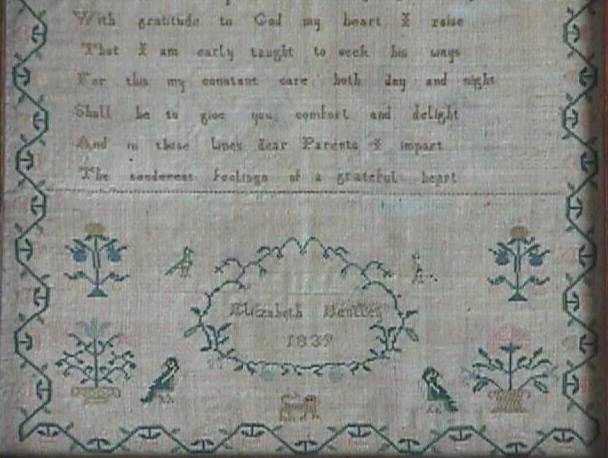 With gratitude to God my heart I raise
That I am early taught to seek his ways
For this my constant care both day and night
Shall be to give you comfort and delight
And in these lines dear Parents I impart
The tenderest feelings of a grateful heart
Elizabeth
1839